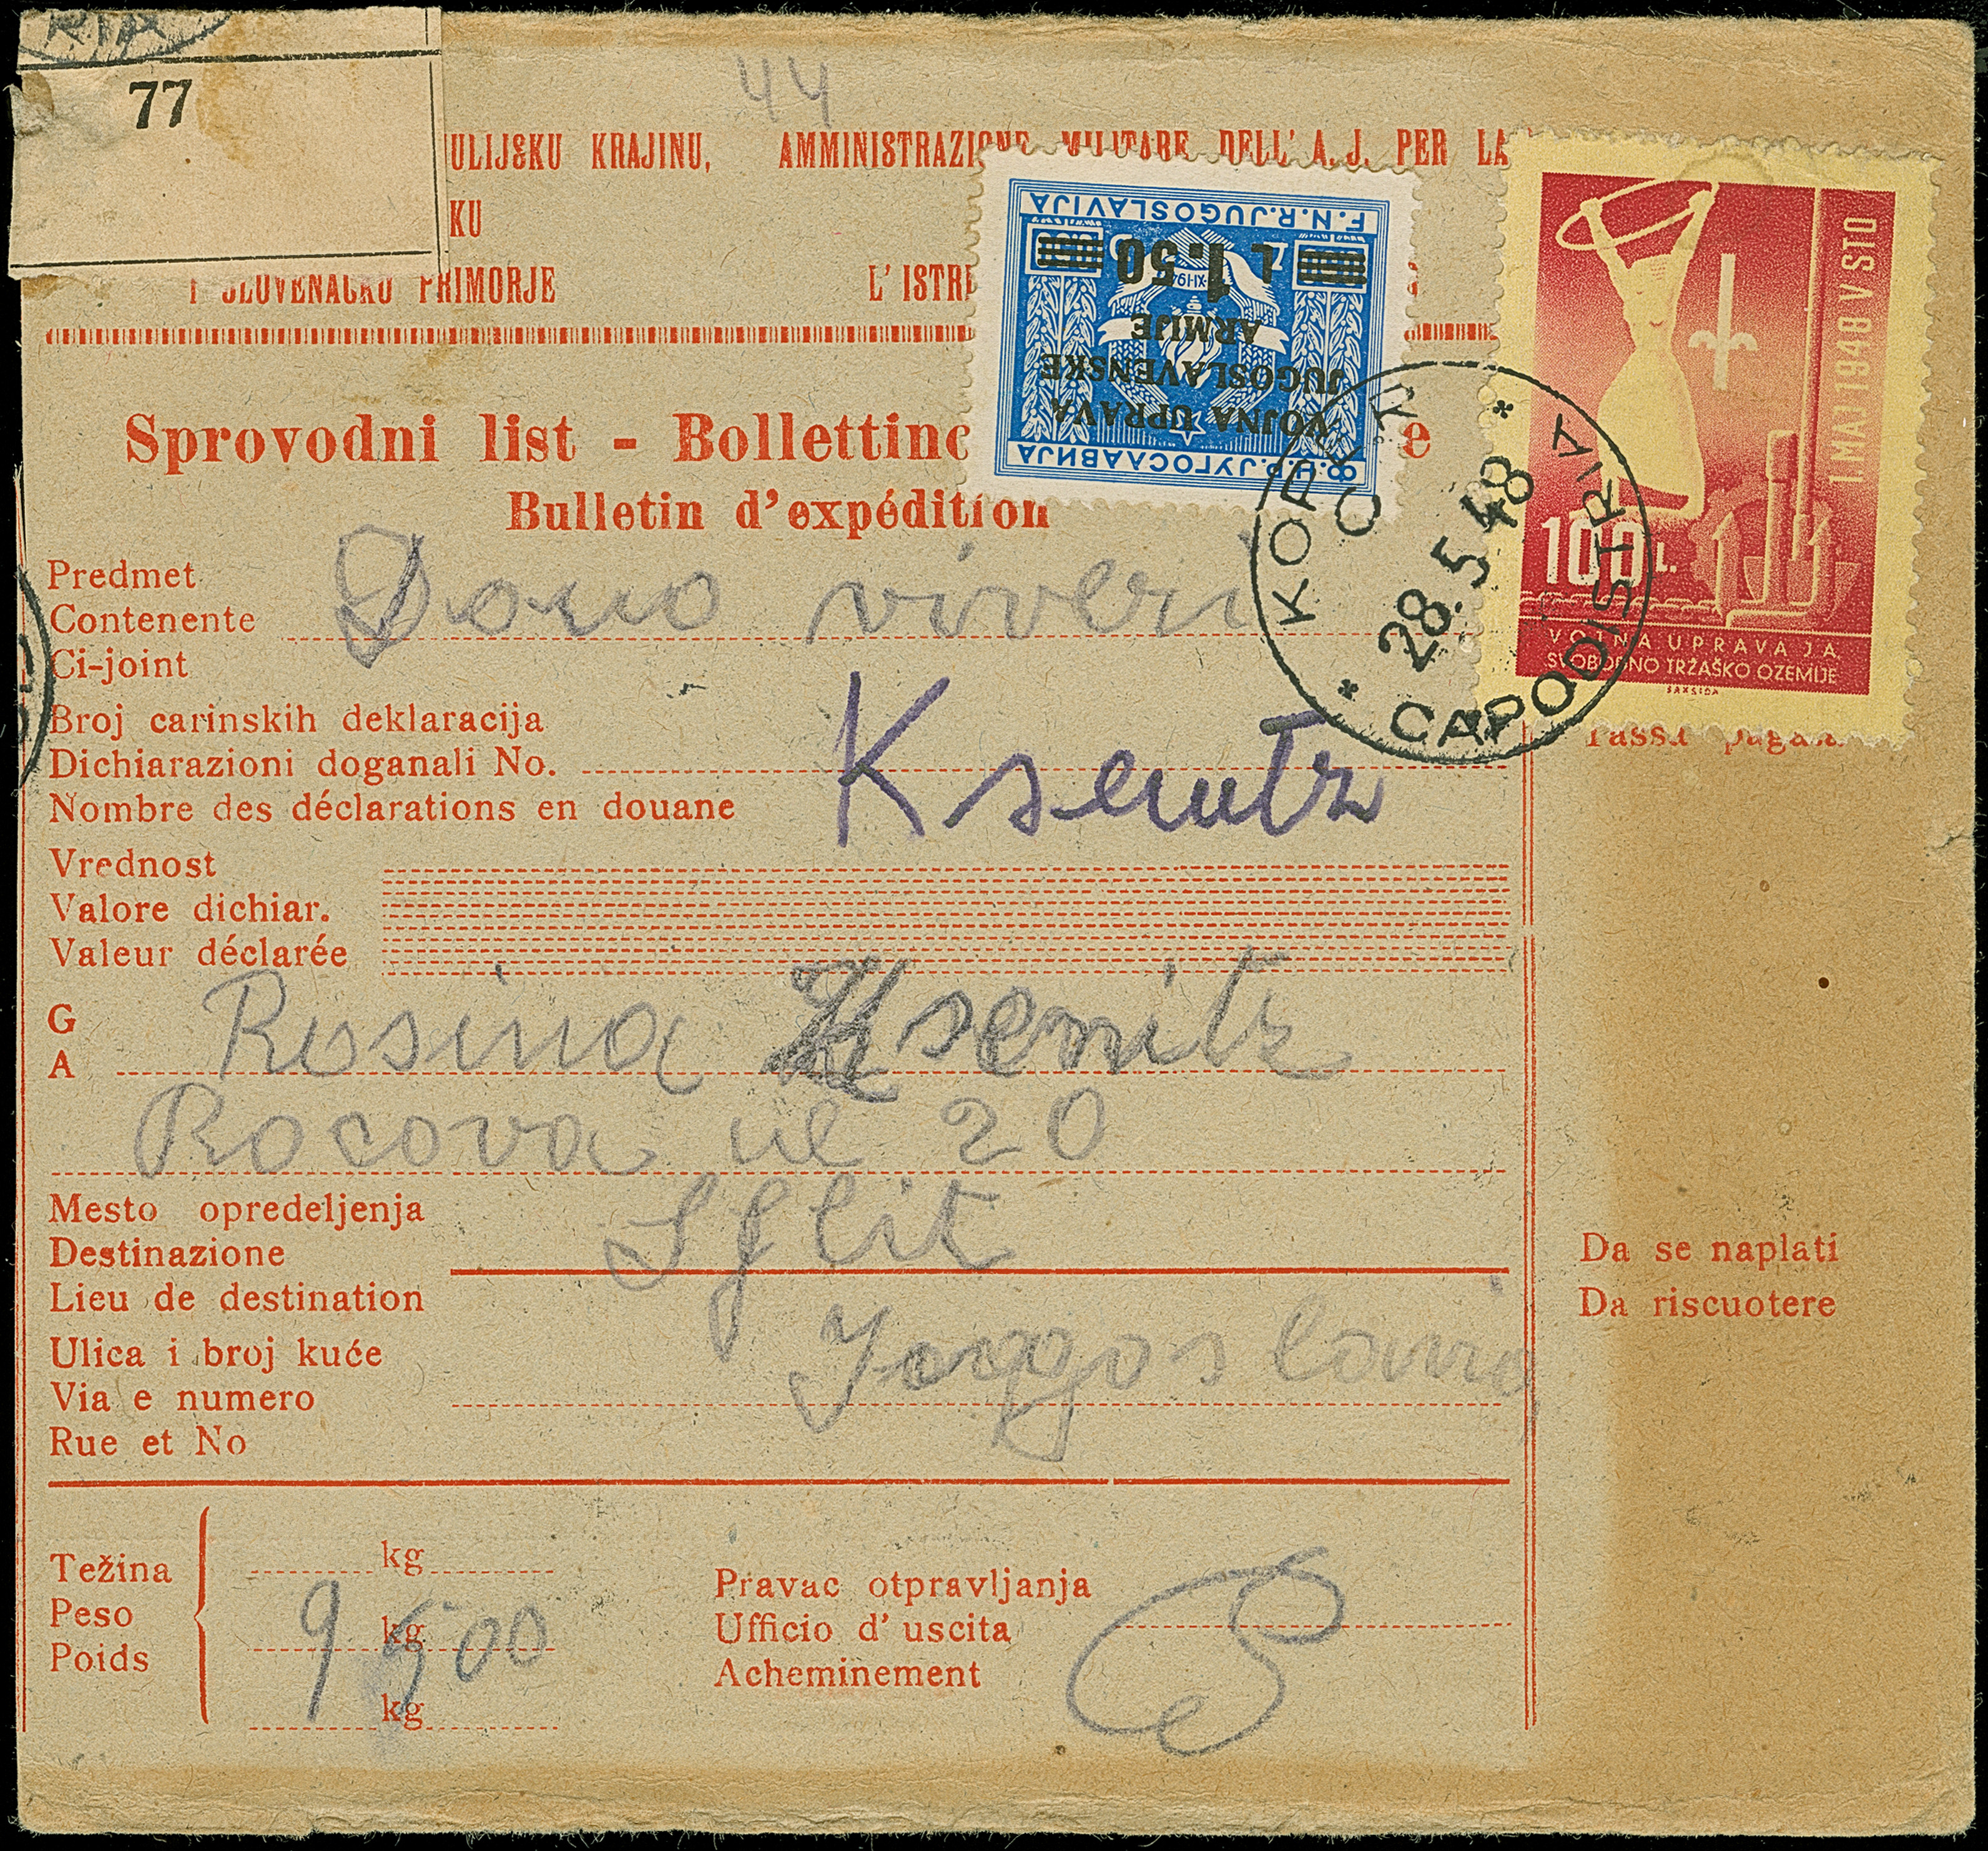 RIA
77
44
ULIJSKU KRAJINU, AMMINISTRAZIONE MILITARE DELL' A. J. PER LA
KU
I SLOVENAČKO PRIMORJE L' ISTR
F.N.R. JUGOSLAVIJA
L 1.50
VOJNA UPRAVA
JUGOSLAVENSKE
ARMIJE
Ф.Н.Р. ЈУГОСЛАВИЈА
I. MAJ 1948 V STO
100 L.
VOJNA UPRAVA JA
SVOBODNO TRŽAŠKO OZEMLJE
SAKSIDA
Sprovodni list - Bollettino e
Bulletin d'expédition
KOPER
28.5.48
CAPODISTRIA
Predmet
Contenente Dono viveri
Ci-joint
Broj carinskih deklaracija
Dichiarazioni doganali No. Ksenitz
Nombre des déclarations en douane
Tassa pagata
Vrednost
Valore dichiar.
Valeur déclarée
G
A Rosina Ksenitz
Rocova ul 20
Mesto opredeljenja
Destinazione Split
Lieu de destination
Da se naplati
Da riscuotere
Ulica i broj kuće Yoggoslavia
Via e numero
Rue et No
Težina kg
Peso kg 9 500
Poids kg
Pravac otpravljanja
Ufficio d' uscita
Acheminement